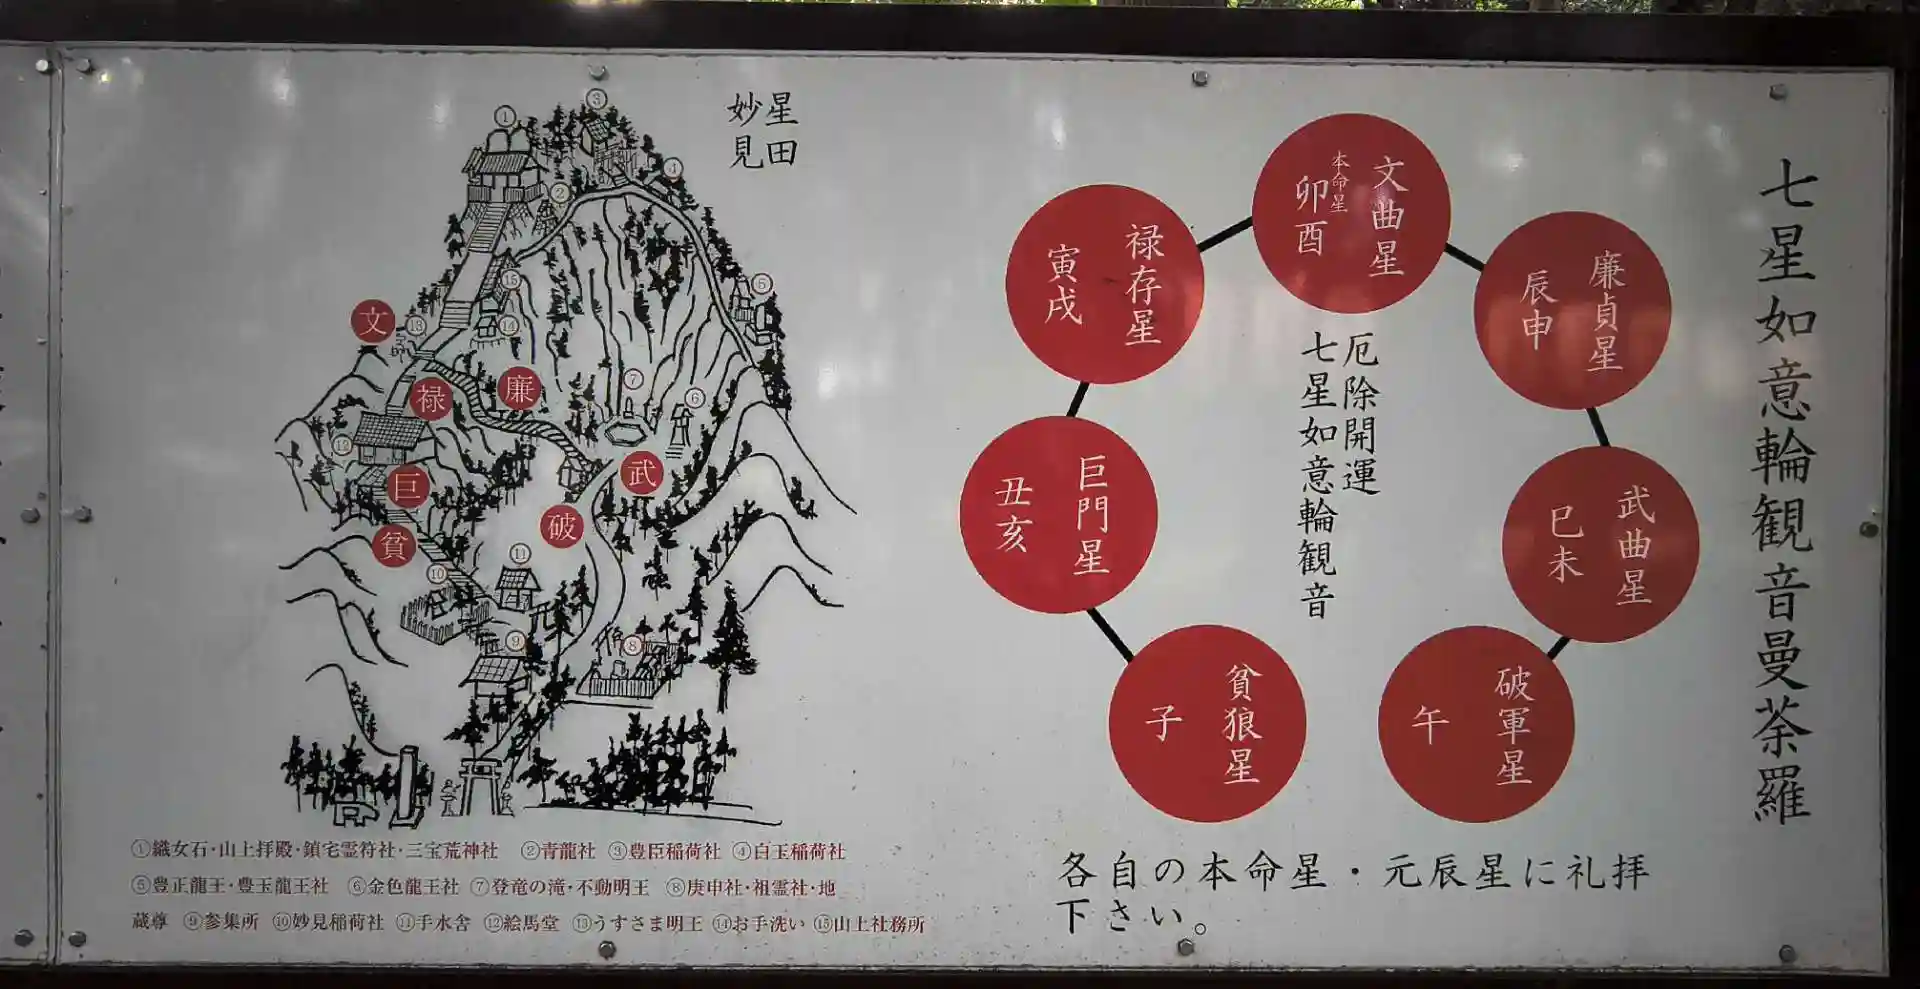 七星如意輪観音曼荼羅
文曲星
本命星
卯酉
廉貞星
辰申
武曲星
巳未
破軍星
午
禄存星
寅戌
巨門星
丑亥
貧狼星
子
厄除開運
七星如意輪観音
各自の本命星・元辰星に礼拝
下さい。
星田
妙見
①
③
②
④
⑤
⑮
⑭
⑬
文
禄
廉
⑦
⑥
⑫
巨
武
貧
破
⑪
⑩
⑨
⑧
①織女石・山上拝殿・鎮宅霊符社・三宝荒神社 ②青龍社 ③豊臣稲荷社 ④白玉稲荷社
⑤豊正龍王・豊玉龍王社 ⑥金色龍王社 ⑦登竜の滝・不動明王 ⑧庚申社・祖霊社・地
蔵尊 ⑨参集所 ⑩妙見稲荷社 ⑪手水舎 ⑫絵馬堂 ⑬うすさま明王 ⑭お手洗い ⑮山上社務所